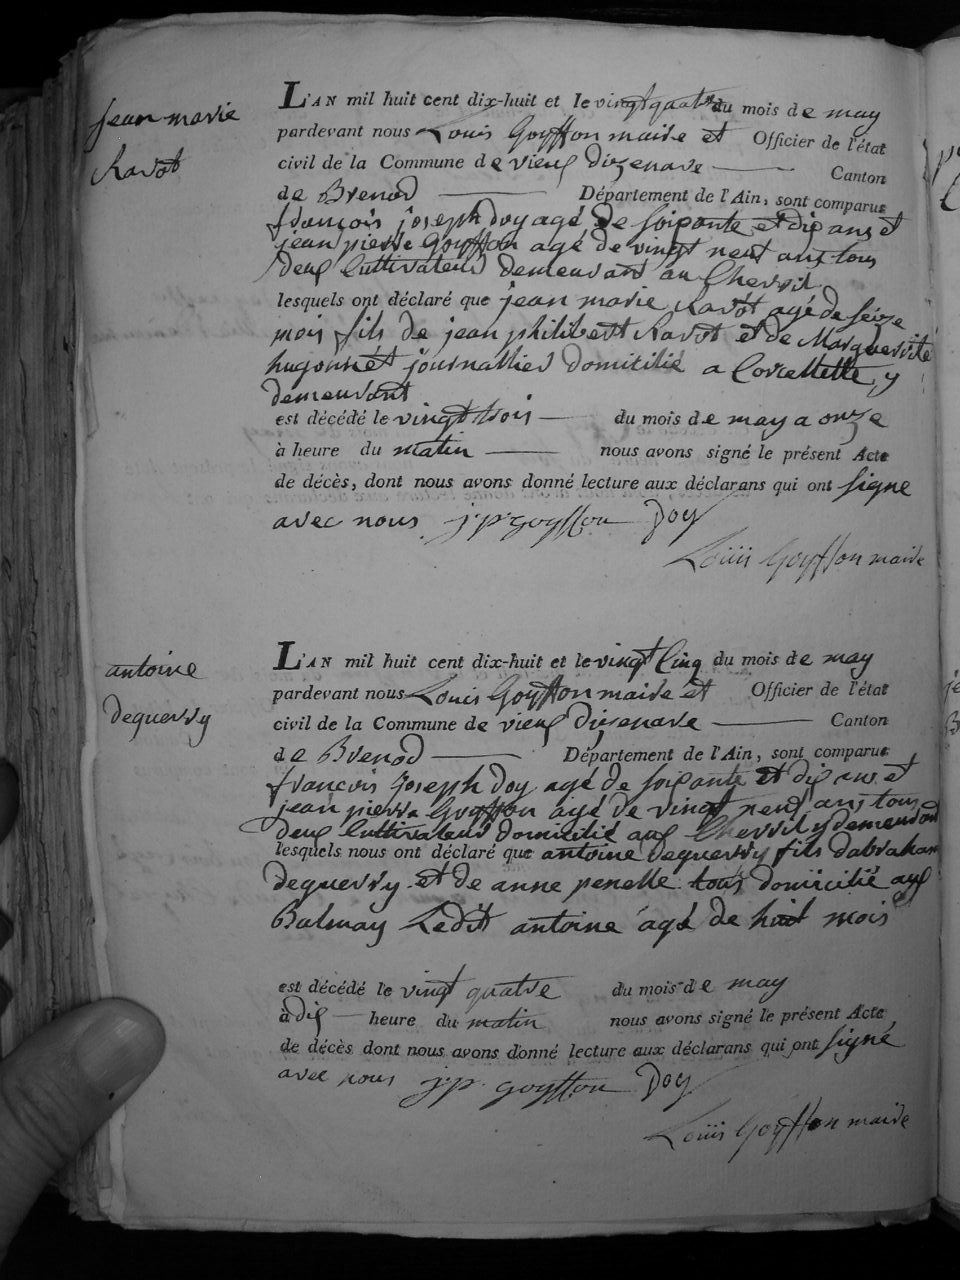 jean marie
Ravot
L'AN mil huit cent dix-huit et le vingt quatre du mois de may
pardevant nous Louis Goyffon maire et Officier de l'état
civil de la Commune de vieux dizenave Canton
de Brenod Département de l'Ain, sont comparus
françois joseph Doy agé de soixante et dix ans et
jean pierre Goyffon agé de vingt neuf ans tous
deux Cultivateurs demeurant au Chevril
lesquels ont déclaré que jean marie Ravot agé de seize
mois fils de jean philibert Ravot et de Marguerite
hugonnet journallier domicilié a Corcellette y
demeurant
est décédé le vingt trois du mois de may a onze
à heure du matin nous avons signé le présent Acte
de décès, dont nous avons donné lecture aux déclarans qui ont signe
avec nous j p goyffon Doy
Louis Goyffon maire
antoine
dequerry
L'AN mil huit cent dix-huit et le vingt Cinq du mois de may
pardevant nous Louis Goyffon maire et Officier de l'état
civil de la Commune de vieux dizenave Canton
de Brenod Département de l'Ain, sont comparus
francois joseph Doy agé de soixante et dix ans et
jean pierre Goyffon agé de vingt neuf ans tous
deux Cultivateurs domicilié aux Chevril y demeurant
lesquels nous ont déclaré que antoine dequerry fils dabraham
dequerry et de anne penelle tous domicilié aux
Balmay Ledit antoine agé de huit mois
est décédé le vingt quatre du mois de may
à dix heure du matin nous avons signé le présent Acte
de décès dont nous avons donné lecture aux déclarans qui ont signé
avec nous j p goyffon Doy
Louis Goyffon maire